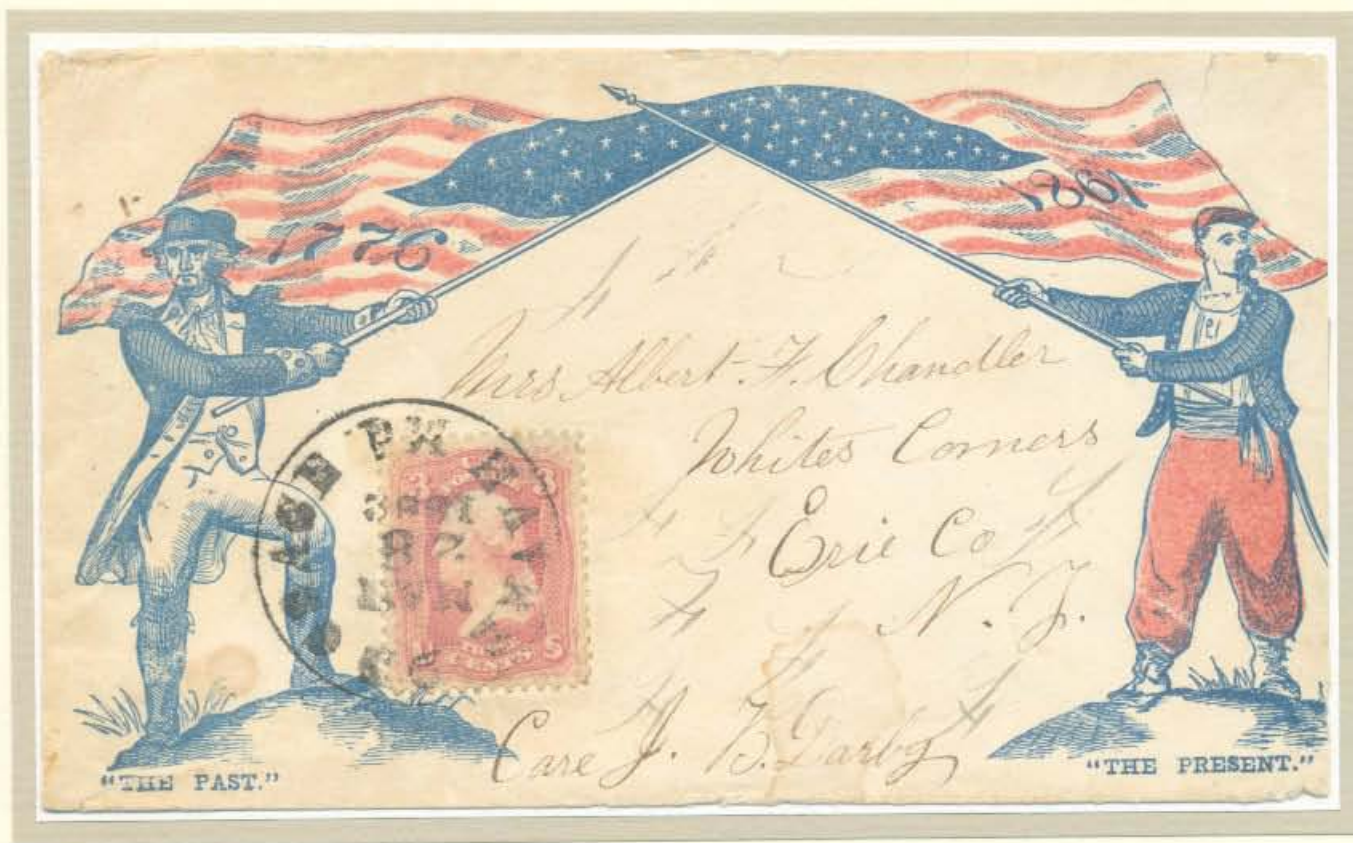 1776
1861
Mrs Albert F. Chandler
Whites Corners
Erie Co
N. Y.
Care J. B. Darby
"THE PAST."
"THE PRESENT."